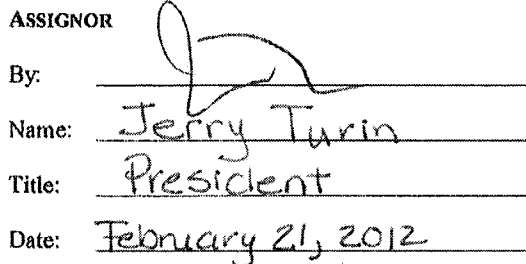 ASSIGNOR
By:
Name: Jerry Turin
Title: President
Date: February 21, 2012